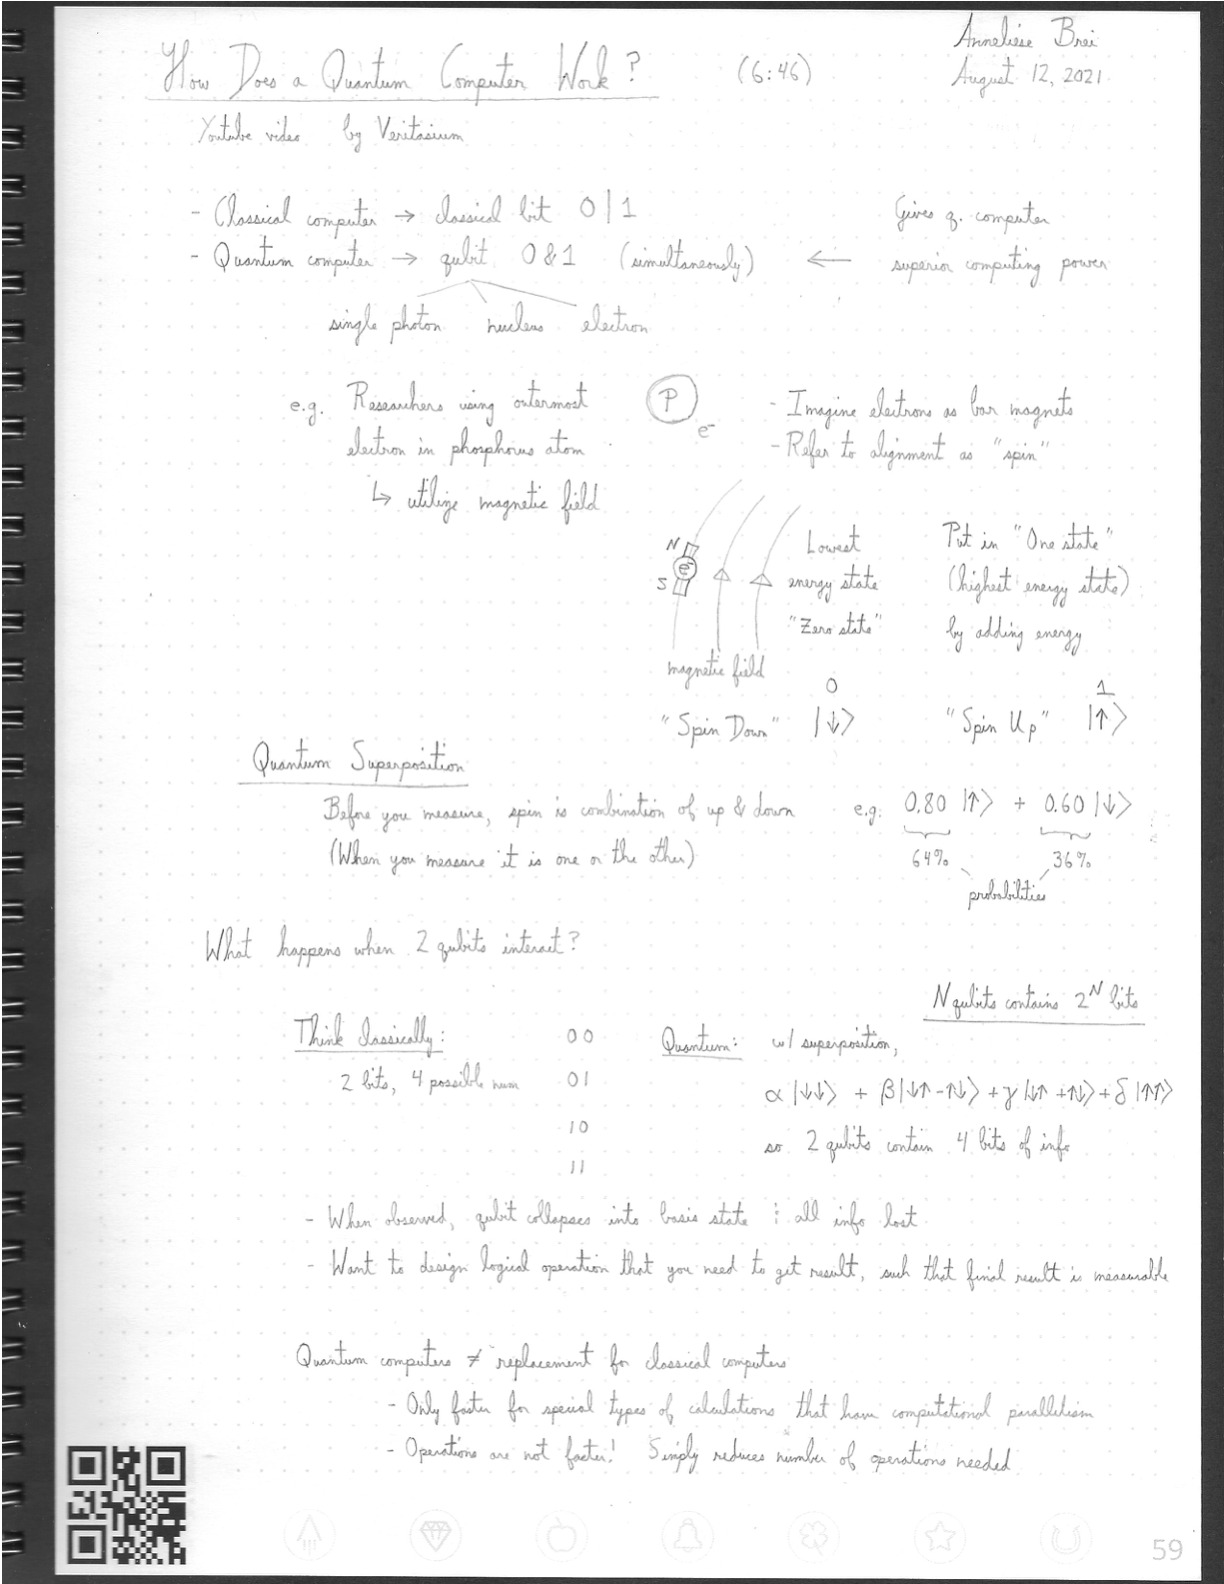 Anneliese Brei
How Does a Quantum Computer Work? (6:46) August 12, 2021
Youtube video by Veritasium
- Classical computer → classical bit 0 | 1
Gives q. computer
- Quantum computer → qubit 0 & 1 (simultaneously) ← superior computing power
single photon nucleus electron
e.g. Researchers using outermost
electron in phosphorus atom
↳ utilize magnetic field
P
e⁻
- Imagine electrons as bar magnets
- Refer to alignment as "spin"
N
e⁻
S
magnetic field
Lowest
energy state
"Zero state"
Put in "One state"
(highest energy state)
by adding energy
0
"Spin Down" |↓⟩
1
"Spin Up" |↑⟩
Quantum Superposition
Before you measure, spin is combination of up & down
(When you measure it is one or the other)
e.g. 0.80 |↑⟩ + 0.60 |↓⟩
64% 36%
probabilities
What happens when 2 qubits interact?
N qubits contains 2ᴺ bits
Think classically:
2 bits, 4 possible num
00
01
10
11
Quantum: w/ superposition,
α |↓↓⟩ + β|↓↑ - ↑↓⟩ + γ |↓↑ + ↑↓⟩ + δ |↑↑⟩
so 2 qubits contain 4 bits of info
- When observed, qubit collapses into basis state ⁝ all info lost
- Want to design logical operation that you need to get result, such that final result is measurable
Quantum computers ≠ replacement for classical computers
- Only faster for special types of calculations that have computational parallelism
- Operations are not faster! Simply reduces number of operations needed
59